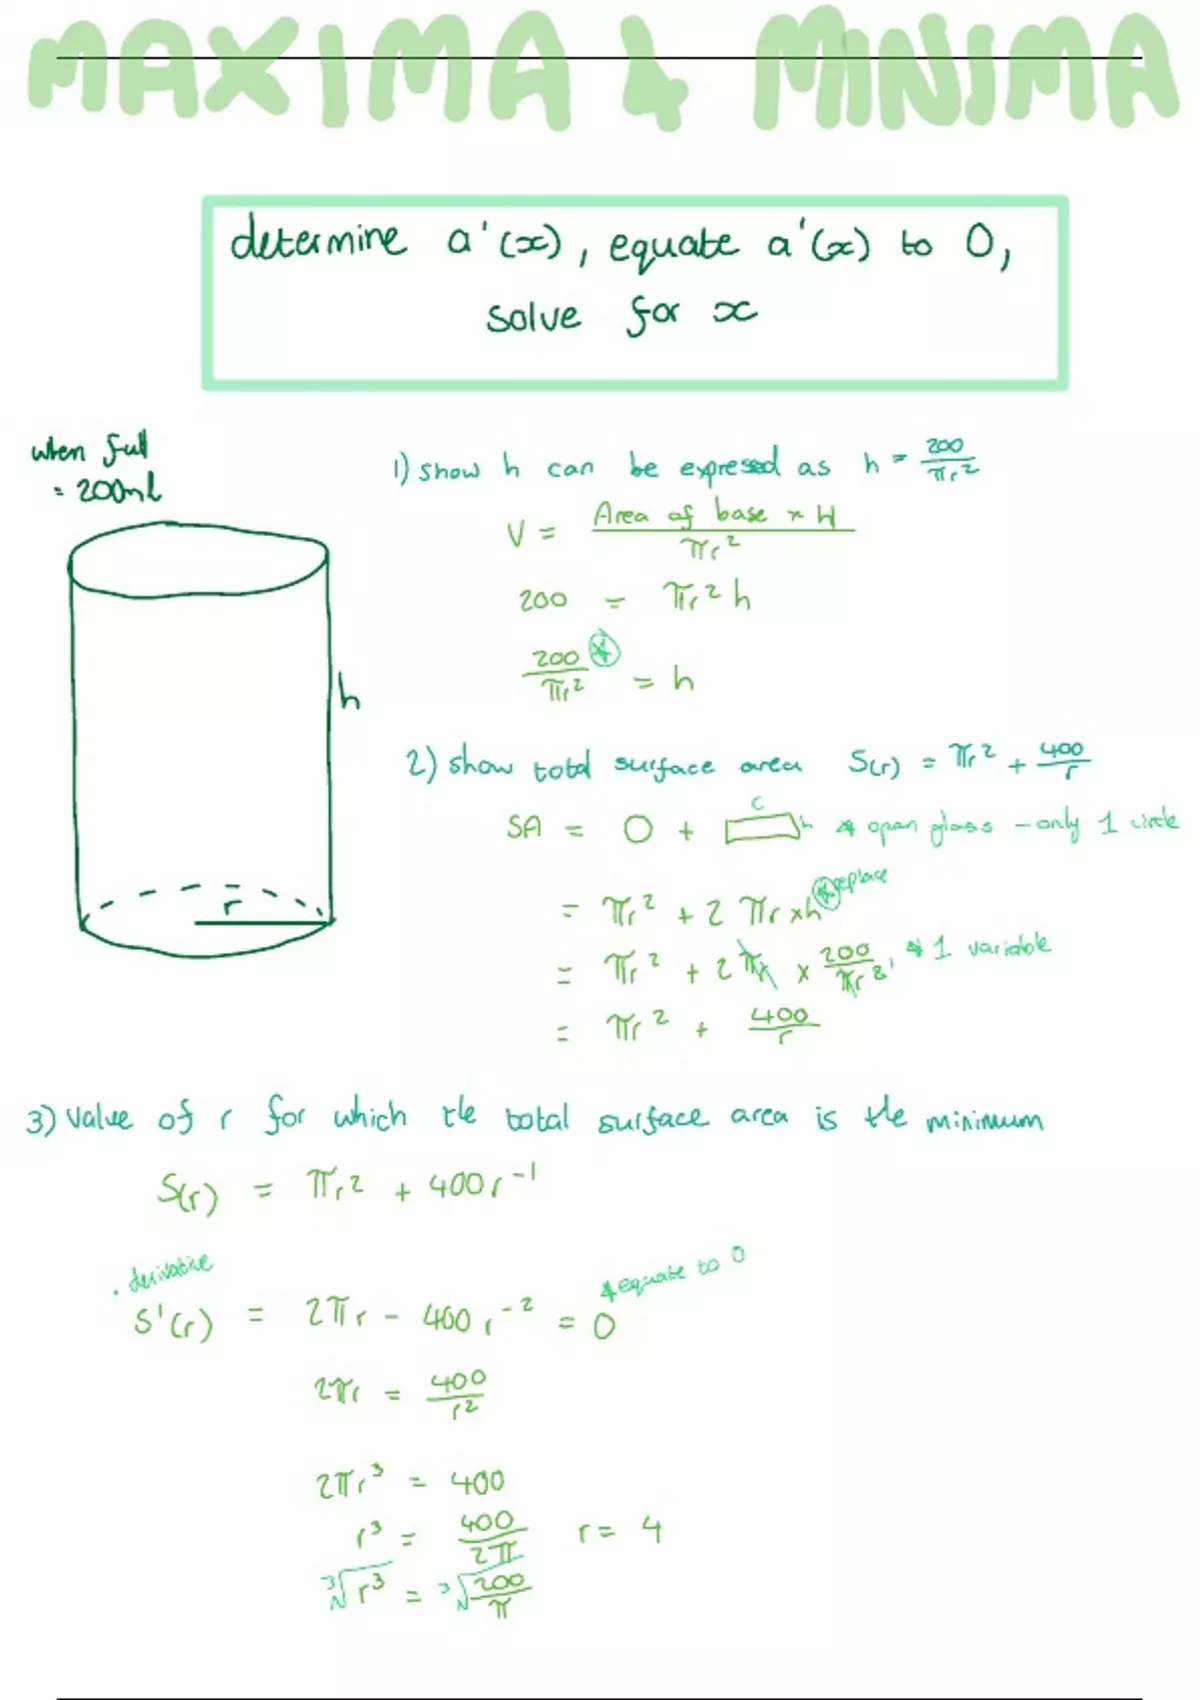 MAXIMA & MINIMA
determine a'(x), equate a'(x) to 0,
solve for x
when full
= 200ml
h
r
1) show h can be expressed as h = 200/πr²
V = Area of base × H / πr²
200 = πr²h
200/πr² * = h
2) show total surface area S(r) = πr² + 400/r
SA = O + c h * open glass - only 1 circle
= πr² + 2πr × h * replace
= πr² + 2πr × 200/πr² * 1 variable
= πr² + 400/r
3) Value of r for which the total surface area is the minimum
S(r) = πr² + 400r⁻¹
. derivative
* equate to 0
S'(r) = 2πr - 400r⁻² = 0
2πr = 400/r²
2πr³ = 400
r³ = 400/2π r = 4
³√r³ = ³√200/π